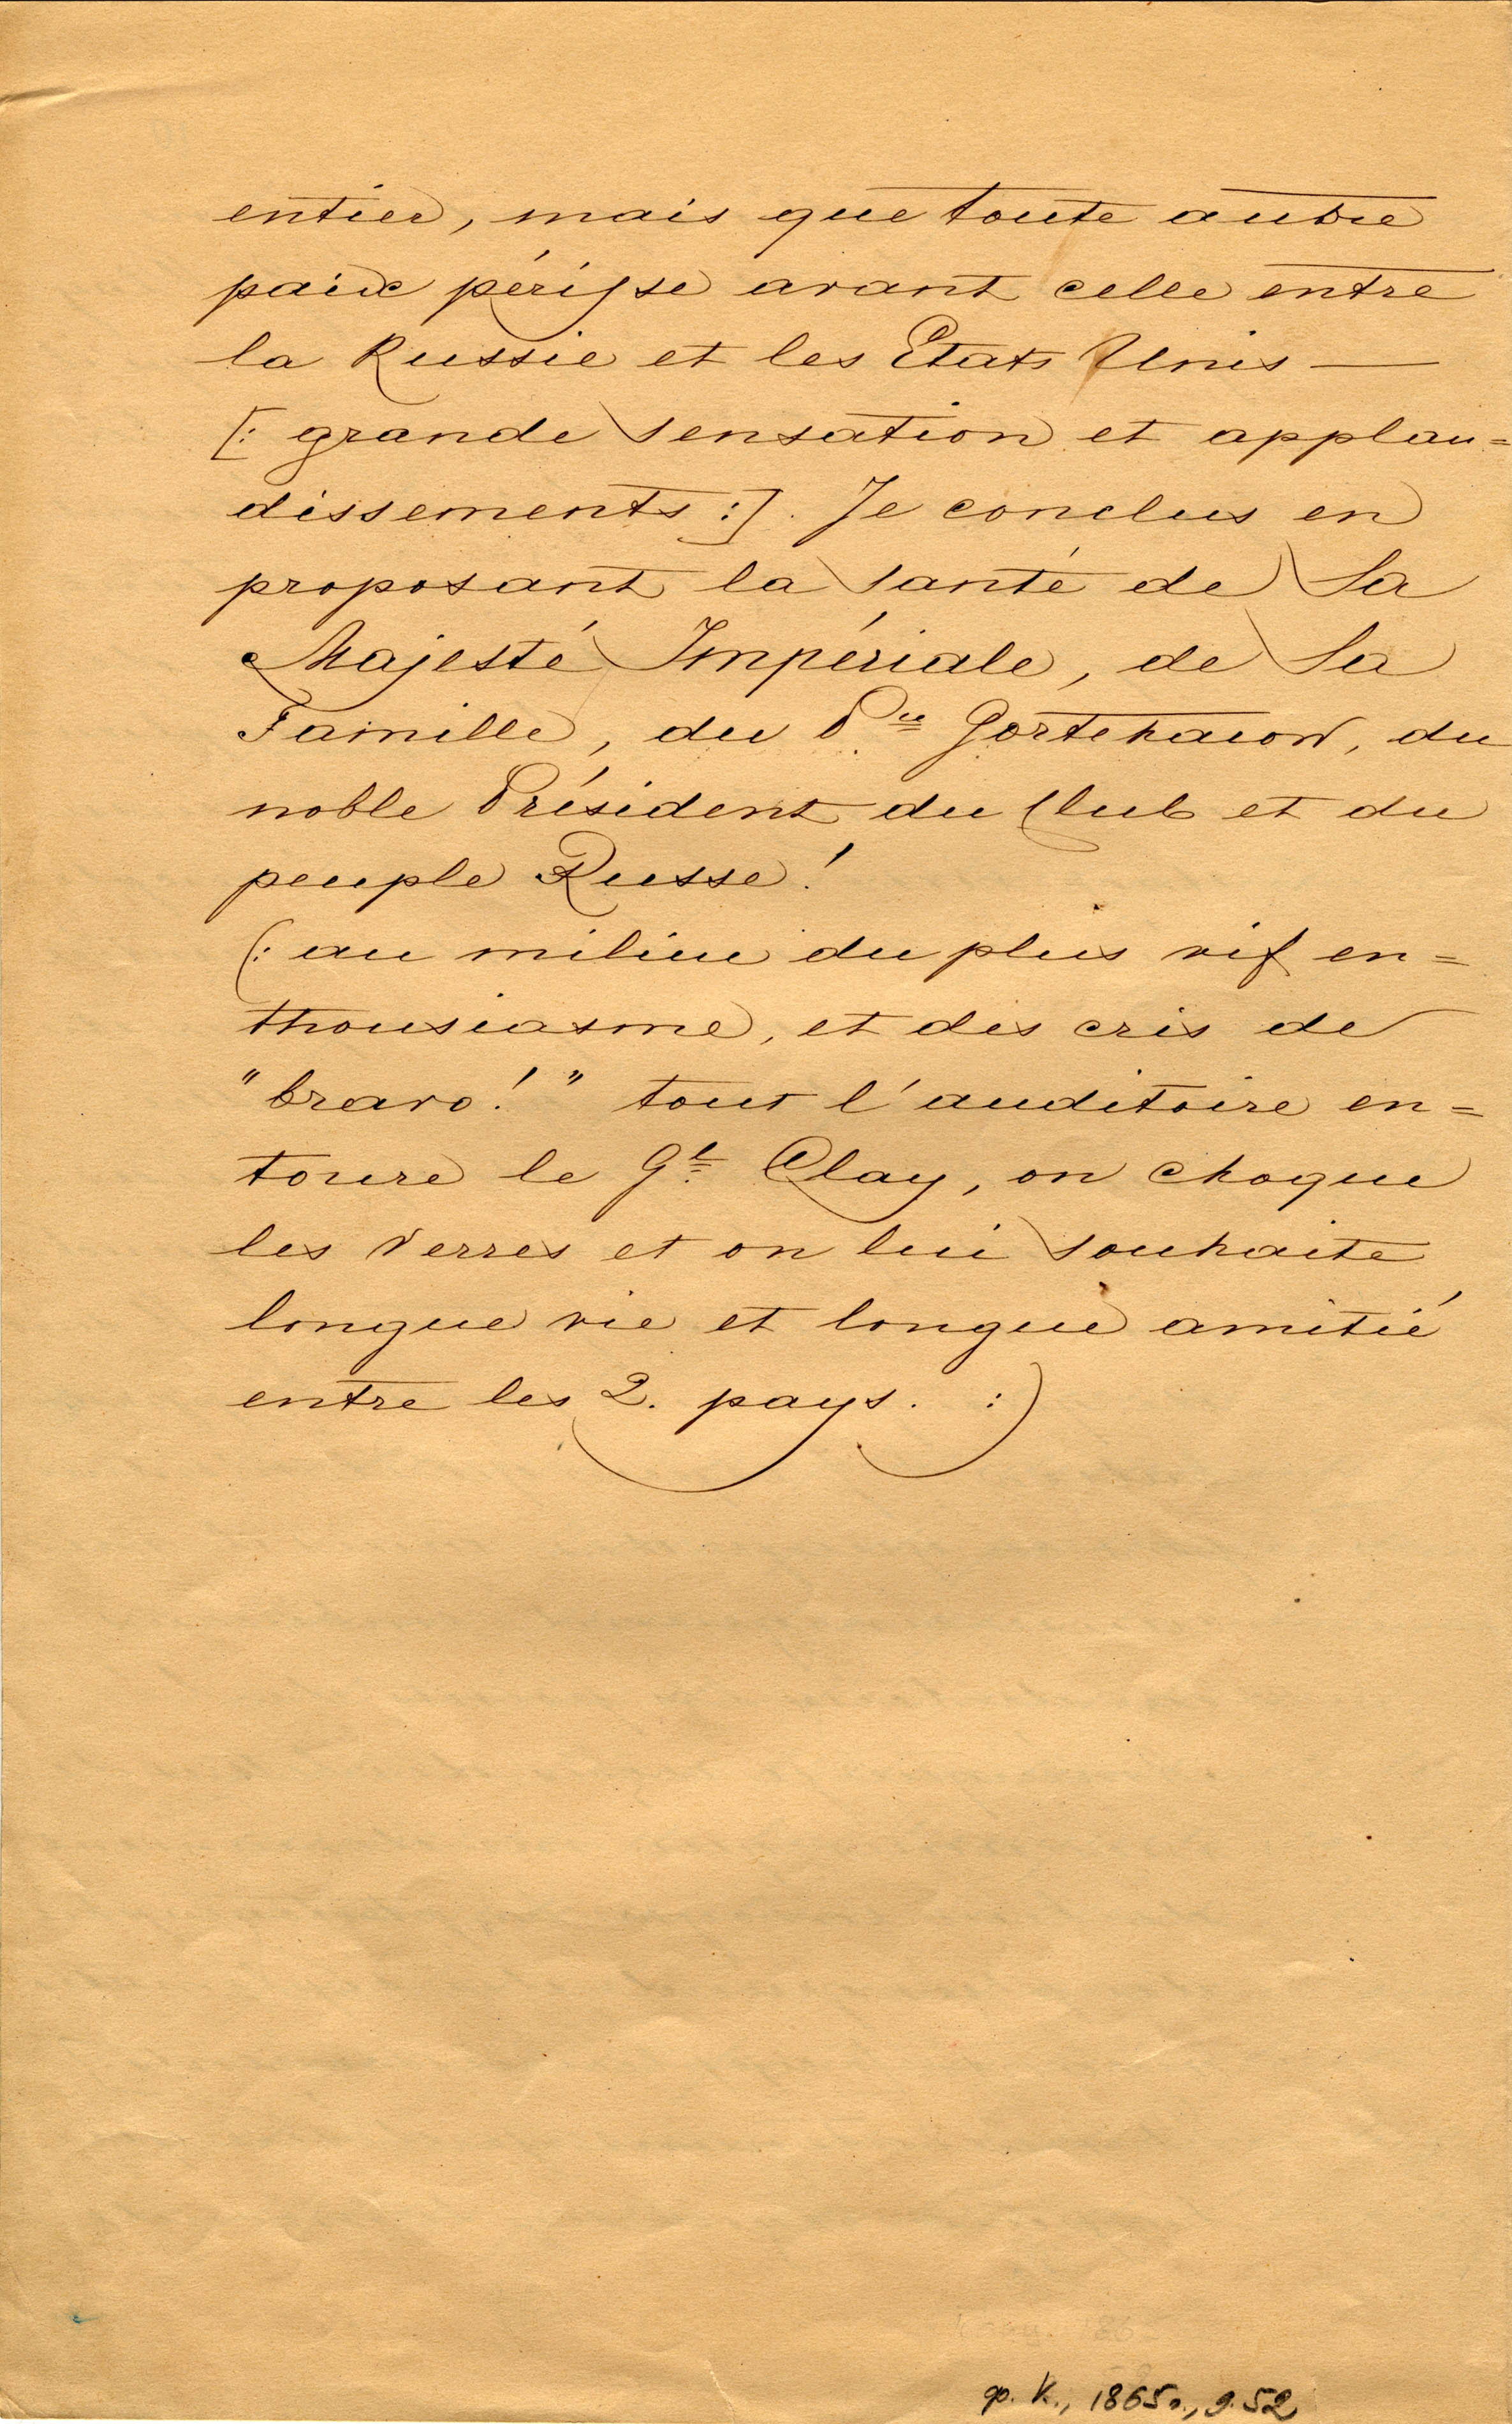 entier, mais que toute autre
paix périsse avant celle entre
la Russie et les Etats Unis —
[: grande sensation et applau=
dissements :]. Je conclus en
proposant la santé de Sa
Majesté Impériale, de Sa
Famille, du Pce Gortchacow, du
noble Président du Club et du
peuple Russe!
(: au milieu du plus vif en=
thousiasme, et des cris de
"bravo!" tout l'auditoire en=
toure le Gl Clay, on choque
les verres et on lui souhaite
longue vie et longue amitié
entre les 2. pays. :)
ф. К., 1865 г., д. 52